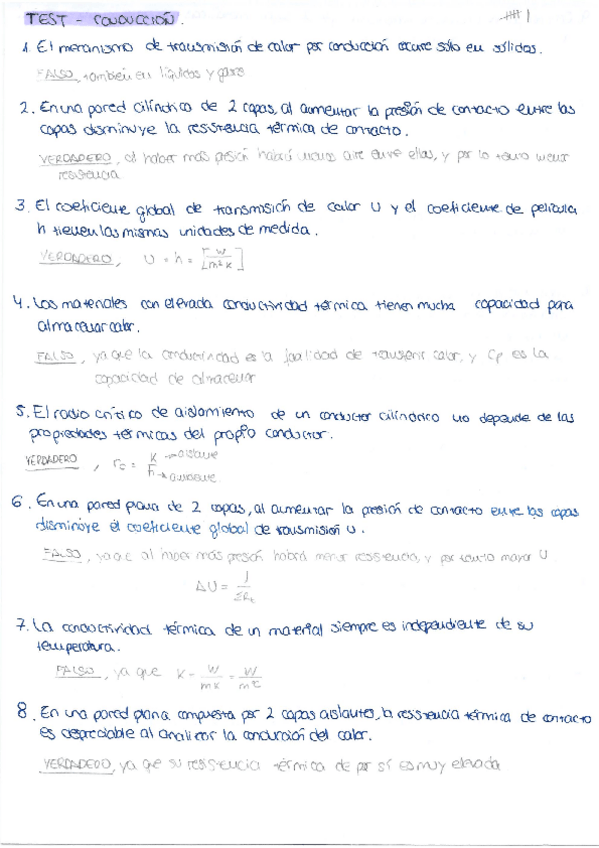 TEST - CONDUCCIÓN.
1. El mecanismo de transmisión de calor por conducción ocurre sólo en sólidos.
FALSO, también en líquidos y gases
2. En una pared cilíndrica de 2 capas, al aumentar la presión de contacto entre las
capas disminuye la resistencia térmica de contacto.
VERDADERO, al haber más presión habrá menos aire entre ellas, y por lo tanto menor
resistencia
3. El coeficiente global de transmisión de calor U y el coeficiente de película
h tienen las mismas unidades de medida.
VERDADERO, U = h = [W/m²K]
4. Los materiales con elevada conductividad térmica tienen mucha capacidad para
almacenar calor.
FALSO, ya que la conductividad es la facilidad de transferir calor, y Cp es la
capacidad de almacenar
5. El radio crítico de aislamiento de un conductor cilíndrico no depende de las
propiedades térmicas del propio conductor.
VERDADERO, rc = K/h → aislante → ambiente
6. En una pared plana de 2 capas, al aumentar la presión de contacto entre las capas
disminuye el coeficiente global de transmisión U.
FALSO, ya que al haber más presión habrá menor resistencia, y por tanto mayor U
ΔU = 1/ΣRt
7. La conductividad térmica de un material siempre es independiente de su
temperatura.
FALSO, ya que K = W/mK = W/m°C
8. En una pared plana compuesta por 2 capas aislantes, la resistencia térmica de contacto
es despreciable al analizar la conducción del calor.
VERDADERO, ya que su resistencia térmica de por sí es muy elevada